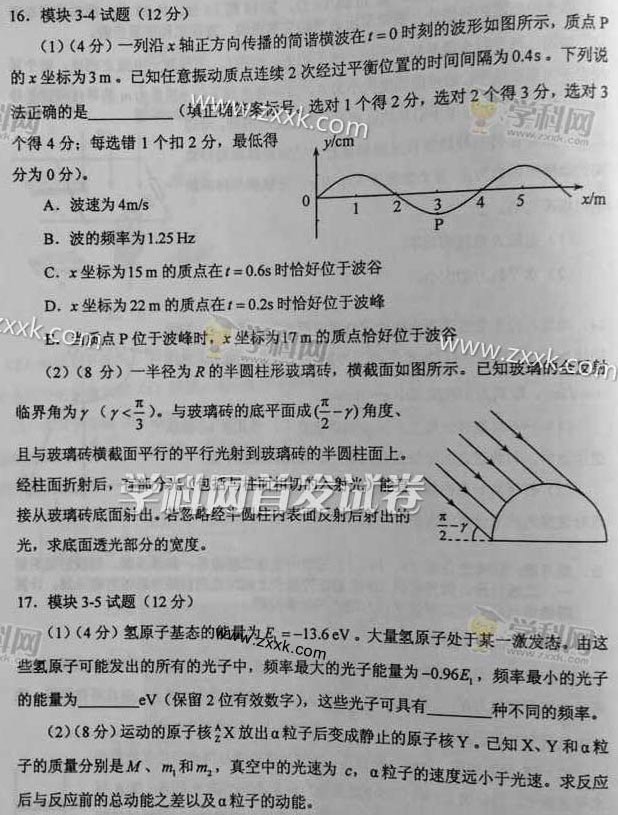 16. 模块 3-4 试题(12 分)
(1)(4 分)一列沿 x 轴正方向传播的简谐横波在 t = 0 时刻的波形如图所示,质点 P
的 x 坐标为 3 m。已知任意振动质点连续 2 次经过平衡位置的时间间隔为 0.4 s。下列说
法正确的是________(填正确答案标号,选对 1 个得 2 分,选对 2 个得 3 分,选对 3
个得 4 分;每选错 1 个扣 2 分,最低得
分为 0 分)。
y/cm
0 1 2 3 4 5 x/m
P
A.波速为 4m/s
B.波的频率为 1.25 Hz
C.x 坐标为 15 m 的质点在 t = 0.6s 时恰好位于波谷
D.x 坐标为 22 m 的质点在 t = 0.2s 时恰好位于波峰
E.当质点 P 位于波峰时,x 坐标为 17 m 的质点恰好位于波谷
(2)(8 分)一半径为 R 的半圆柱形玻璃砖,横截面如图所示。已知玻璃的全反射
临界角为 γ(γ < π/3)。与玻璃砖的底平面成 (π/2 − γ) 角度、
且与玻璃砖横截面平行的平行光射到玻璃砖的半圆柱面上。
经柱面折射后,有部分光(包括与柱面相切的入射光)能直
接从玻璃砖底面射出。若忽略经半圆柱内表面反射后射出的
光,求底面透光部分的宽度。
π/2 − γ
17. 模块 3-5 试题(12 分)
(1)(4 分)氢原子基态的能量为 E₁ = −13.6 eV。大量氢原子处于某一激发态。由这
些氢原子可能发出的所有的光子中,频率最大的光子能量为 −0.96E₁,频率最小的光子
的能量为________eV(保留 2 位有效数字),这些光子可具有________种不同的频率。
(2)(8 分)运动的原子核 ᴬ_Z X 放出 α 粒子后变成静止的原子核 Y。已知 X、Y 和 α 粒
子的质量分别是 M、m₁ 和 m₂,真空中的光速为 c,α 粒子的速度远小于光速。求反应
后与反应前的总动能之差以及 α 粒子的动能。
学科网
www.zxxk.com
学科网首发试卷